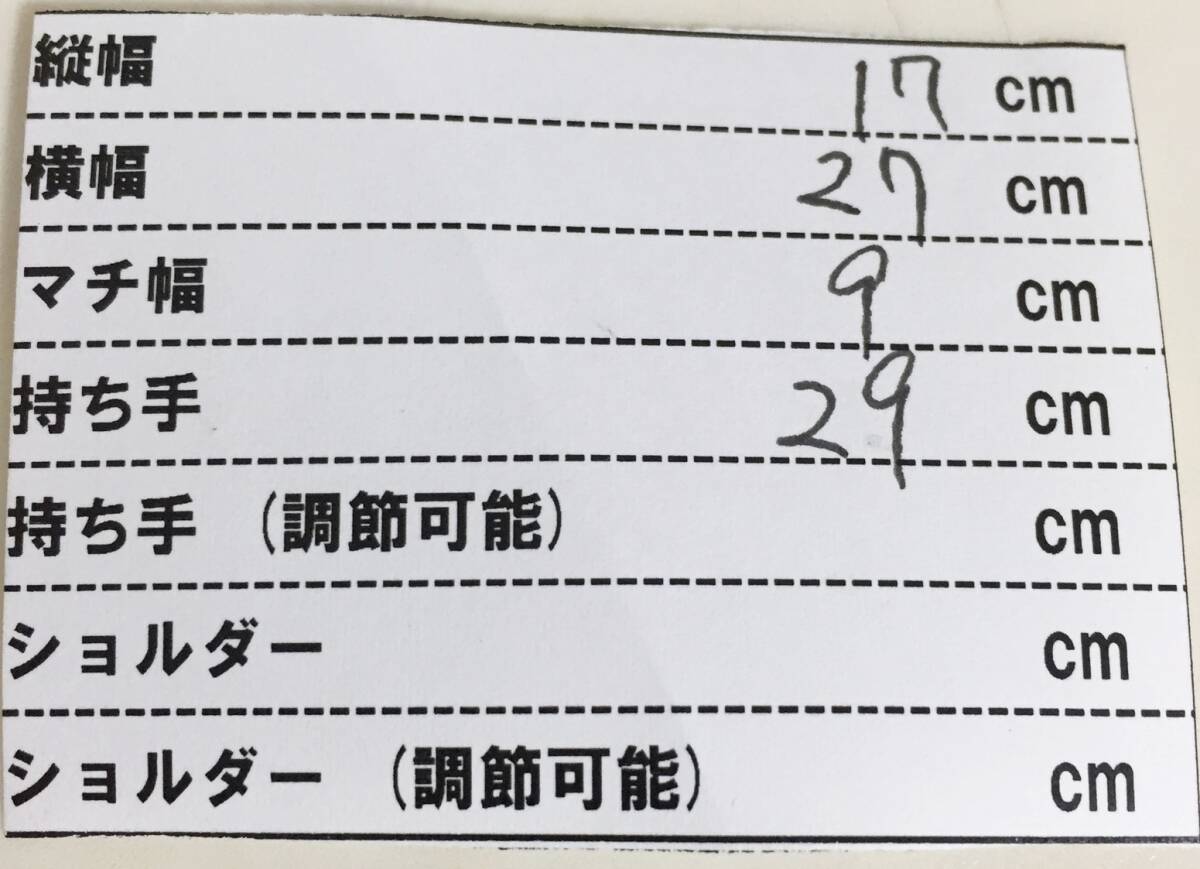 縦幅 17 cm
横幅 27 cm
マチ幅 9 cm
持ち手 29 cm
持ち手 (調節可能) cm
ショルダー cm
ショルダー (調節可能) cm